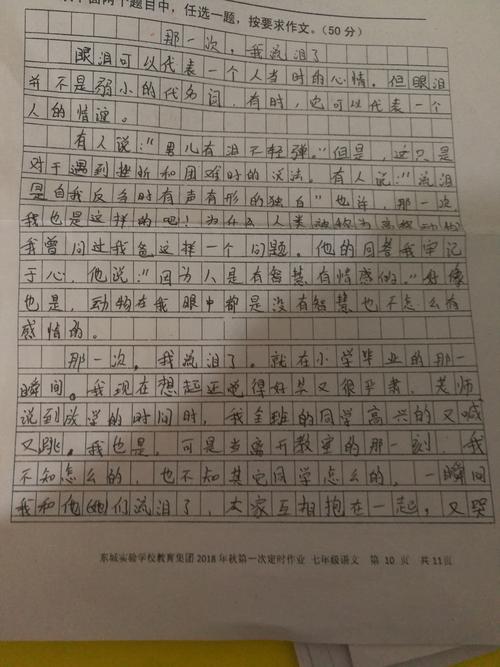 下面两个题目中，任选一题，按要求作文。（50分）
那一次，我流泪了
眼泪可以代表一个人当时的心情。但眼泪
并不是弱小的代名词，有时，也可以代表一个
人的情谊。
有人说：“男儿有泪不轻弹。”但是，这只是
对于遇到挫折和困难时的说法。有人说：“流泪
是自我反省时有声有形的独白”也许，那一次，
我也是这样的吧！为什么人类被称为高级动物
我曾问过我爸这样一个问题。他的回答我牢记
于心，他说：“因为人是有智慧有情感的。”好像
也是，动物在我眼中都是没有智慧也不怎么有
感情的。
那一次，我流泪了。就在小学毕业的那一
瞬间。我现在想起还觉得好笑又很严肃，老师
说到放学的时间时，我全班的同学高兴的又喊
又跳。我也是，可是当离开教室的那一刻，我
不知怎么的，也不知其它同学怎么的，一瞬间
我和他(她)们流泪了，大家互相抱在一起，又哭
东城实验学校教育集团2018年秋第一次定时作业 七年级语文 第10页 共11页